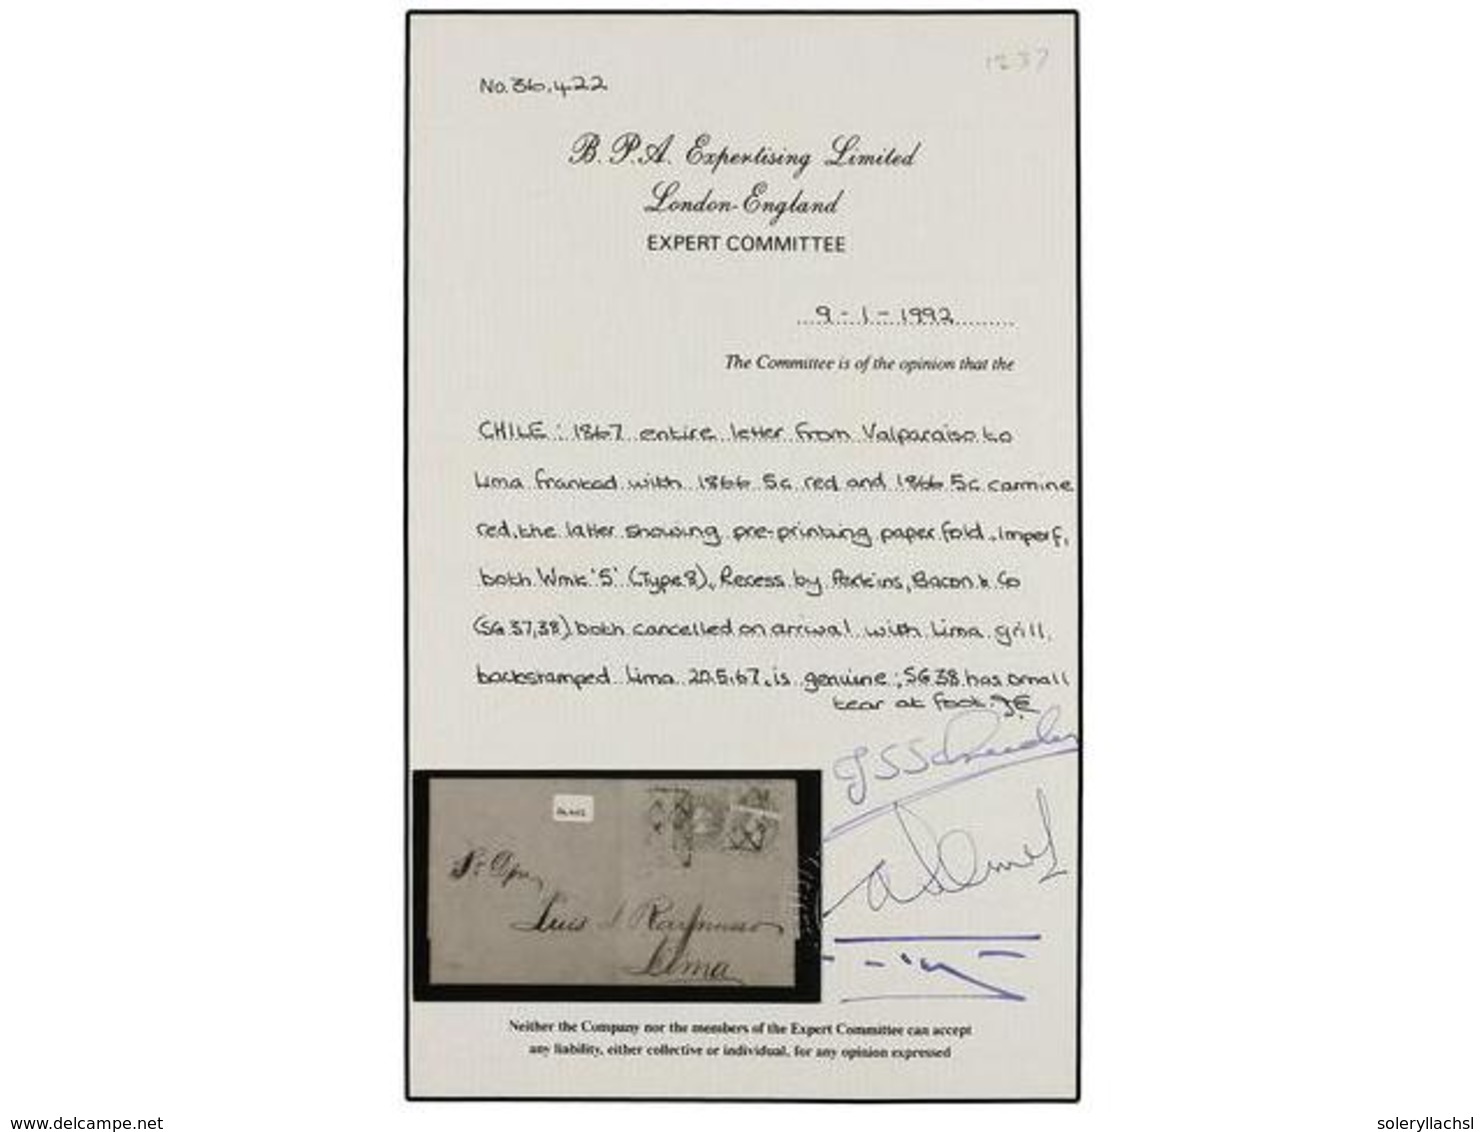 1237
No. 36,422
B. P. A. Expertising Limited
London-England
EXPERT COMMITTEE
9 - 1 - 1992
The Committee is of the opinion that the
CHILE: 1867 entire letter from Valparaiso to
Lima franked with 1866 5c red and 1866 5c carmine
red, the latter showing pre-printing paper fold, Imperf,
both Wmk '5' (Type 8), Recess by Perkins, Bacon & Co
(SG 37,38) both cancelled on arrival with Lima grill,
backstamped Lima 20.5.67, is genuine; SG 38 has small
tear at foot.
Luis
Lima
Neither the Company nor the members of the Expert Committee can accept
any liability, either collective or individual, for any opinion expressed
www.delcampe.net
soleryllachsl